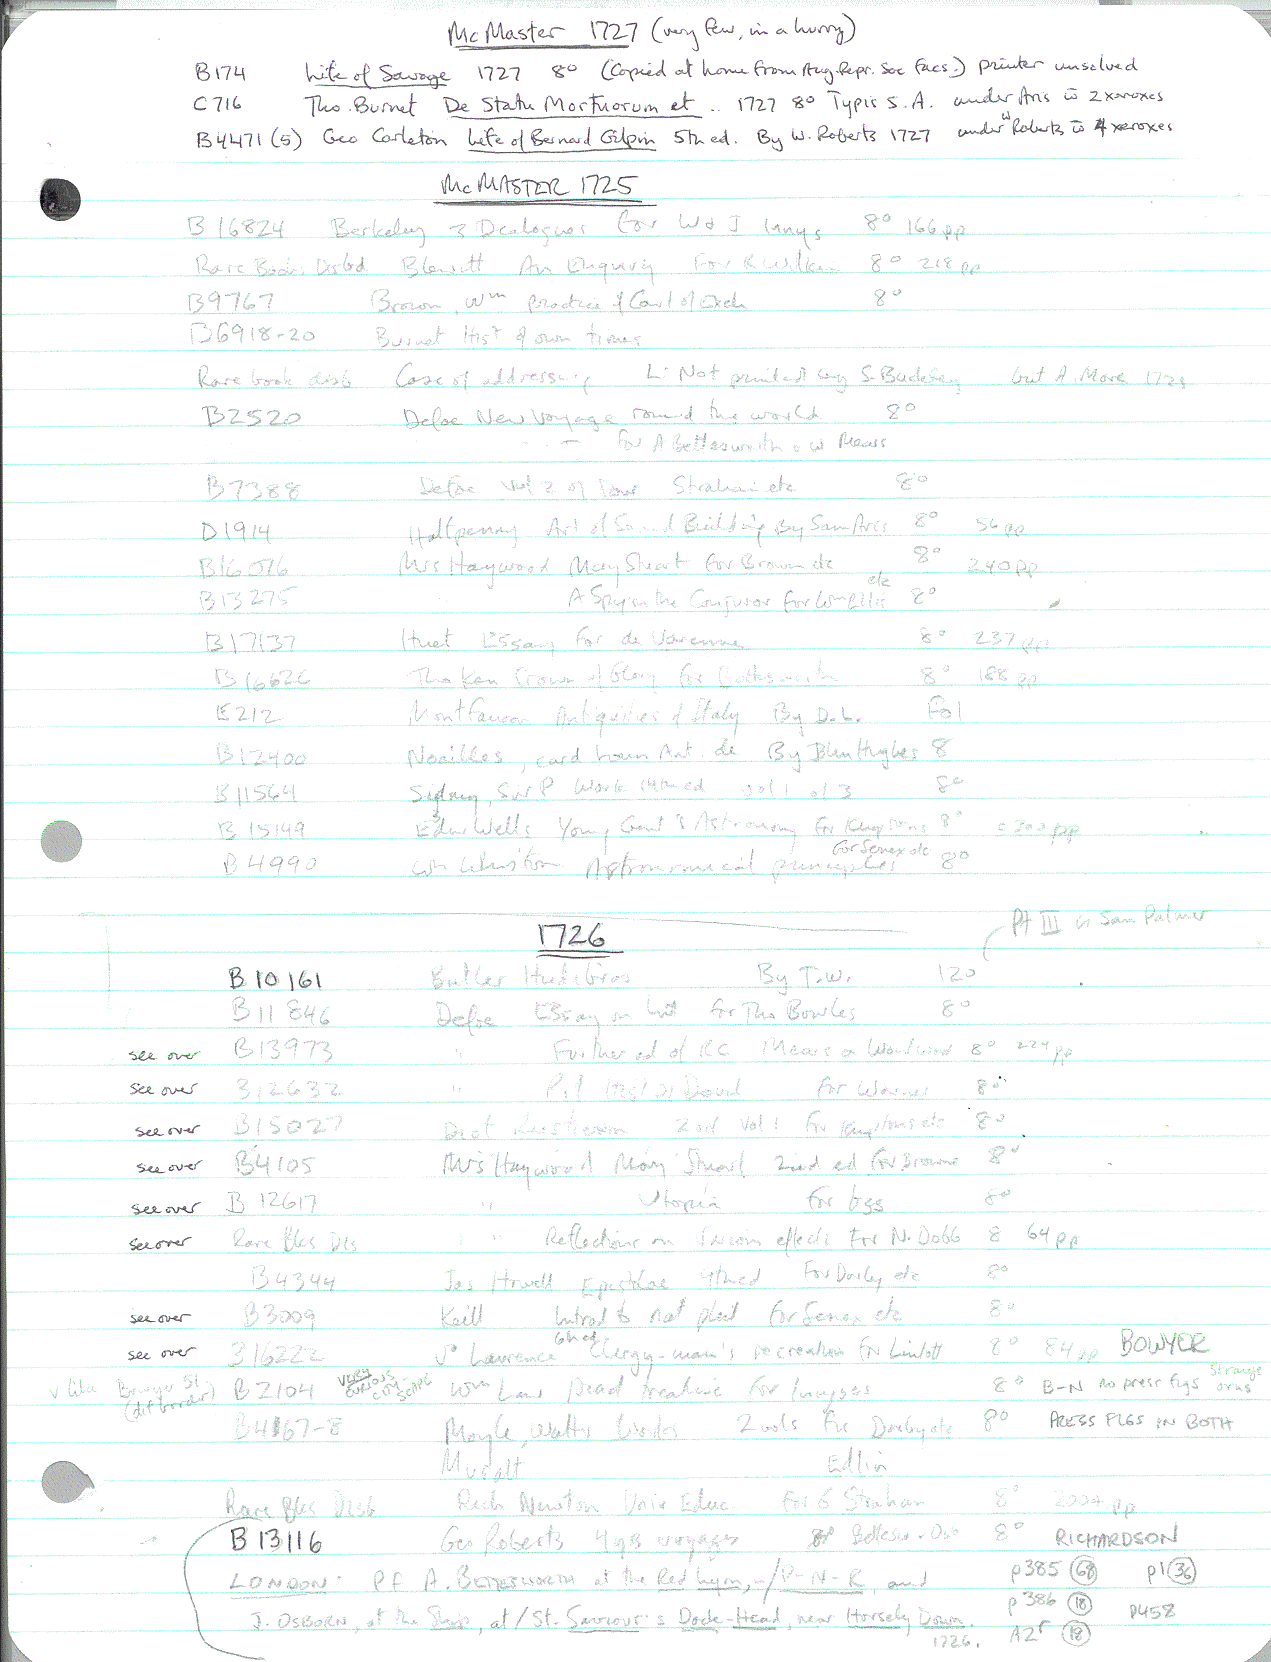 McMaster 1727 (very few, in a hurry)
B174 Life of Savage 1727 8º (Copied at home from Aug. Repr. Soc facs.) printer unsolved
C716 Tho. Burnet De Statu Mortuorum et .. 1727 8º Typis S. A. under Aris 2 xeroxes
B4471 (5) Geo Carleton Life of Bernard Gilpin 5th ed. By W. Roberts 1727 under W Roberts 4 xeroxes
McMASTER 1725
B16824 Berkeley 3 Dialogues for W & J Innys 8º 166 pp
Rare Books Disbd Blewitt An Enquiry For R Wilkin 8º 218 pp
B9767 Brown, Wm practice of Court of Exch 8º
B6918-20 Burnet Hist of own times
Rare book disb Case of addressing L: Not printed by S. Buckley but A. More 1725
B2520 Defoe New Voyage round the world 8º
For A Bettesworth & W Mears
B7388 Defoe Vol 2 of Tour Strahan etc 8º
D1914 Halfpenny Art of Sound Building By Sam Aris 8º 56 pp
B16076 Mrs Haywood Mary Stuart For Browne etc 8º 240 pp
B13275 A Spy on the Conjuror for Wm Ellis etc 8º
B17137 Huet Essay For de Varenne 8º 237 pp
B16626 Tho Ken Crown of Glory for Bettesworth 8º 188 pp
E212 Montfaucon Antiquities of Italy By D. L. Fol
B12400 Noailles, card Ant. de By Blun Hughes 8
B11564 Sidney, Sir P Works 14th ed vol 1 of 3 8º
B15149 Edw Wells Young Gent's Astronomy for Knaptons 8º c 300 pp
B4990 Wm Whiston Astronomical principles for Senex etc 8º
1726
Pt III is Sam Palmer
B10161 Butler Hudibras By T.W. 12º
B11846 Defoe Essay on for Tho Bowles 8º
see over B13973 " Further ed of RC Mears & Woodward 8º 224 pp
see over B12632 " Pol Hist of Devil for Warner 8º
see over B15027 Dict Rusticum 2 ed Vol 1 For Knaptons etc 8º
see over B4105 Mrs Haywood Mary Stuart 2nd ed for Browne 8º
see over B12617 " Utopia For bss 8º
see over Rare Bks Dis " Reflections on various effects For N. Dobb 8 64 pp
B4344 Jas Howell Epistolae 9th ed For Darby etc 8º
see over B3009 Keill Introd to nat phil For Senex etc 8º
see over B16222 Jo Lawrence Clergy-man's recreation 6th ed. For Lintott 8º 84 pp BOWYER
v like Bowyer 51 (dif border) B2104 VERY CURIOUS CITY-SCAPE Wm Law treatise For Innyses 8º B-N no press figs Strange orns
B4167-8 Moyle, Walter Works 2 vols For Darby etc 8º PRESS FIGS IN BOTH
Muralt Edlin
Rare Bks Disb Rich Newton Univ Educ For G Strahan 8º 200+ pp
B13116 Geo Roberts 4 yrs voyages Bettesw - Osb 8º RICHARDSON
LONDON: Pf A. BETTESWORTH at the Red Lyon, -/P-N-R, and p385 (68) p1 (36)
J. OSBORN, at the Ship, at/St. Saviour's Dock-Head, near Horsely Down. p386 (18) p458
1726. A2r (18)